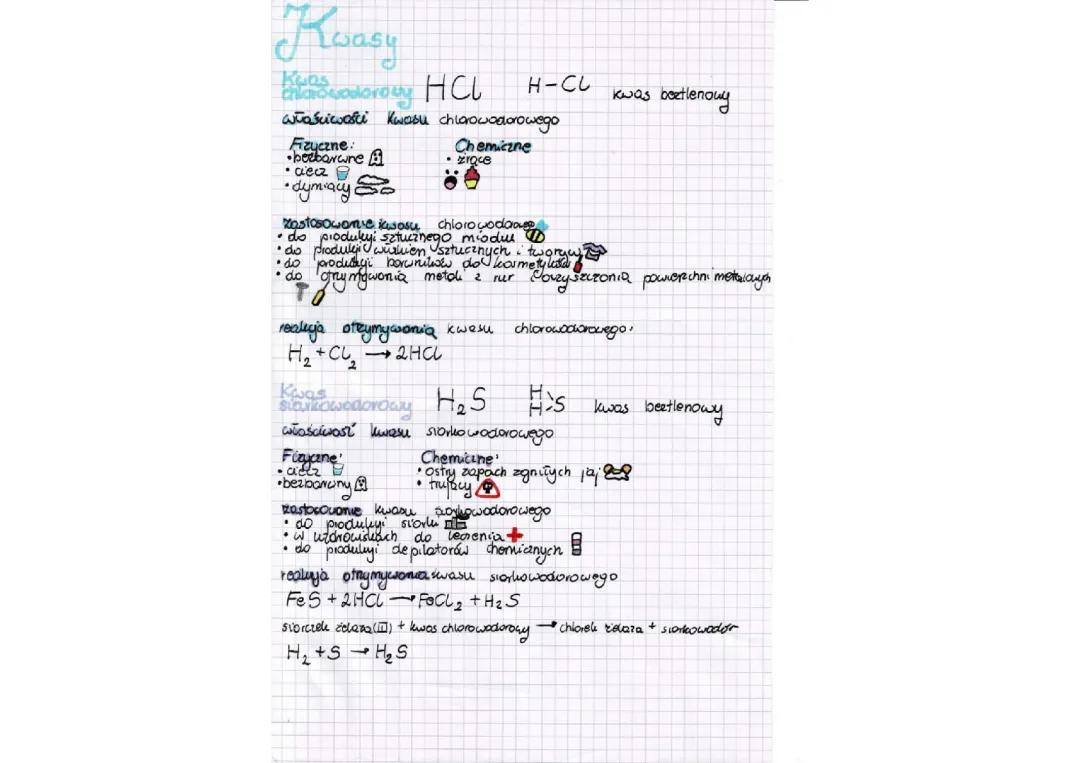 Kwasy
Kwas chlorowodorowy HCl H-Cl kwas beztlenowy
właściwości kwasu chlorowodorowego
Fizyczne: Chemiczne
• bezbarwne • żrące
• ciecz
• dymiący
zastosowanie kwasu chlorowodorowego
• do produkcji sztucznego miodu
• do produkcji włókien sztucznych i tworzyw
• do produkcji barwników do kosmetyków
• do otrzymywania metali z rur oczyszczania powierzchni metalowych
reakcja otrzymywania kwasu chlorowodorowego:
H₂ + Cl₂ → 2HCl
Kwas siarkowodorowy H₂S H H>S kwas beztlenowy
właściwość kwasu siarkowodorowego
Fizyczne: Chemiczne:
• ciecz • ostry zapach zgniłych jaj
• bezbarwny • trujący
zastosowanie kwasu siarkowodorowego
• do produkcji siarki
• w uzdrowiskach do leczenia
• do produkcji depilatorów chemicznych
reakcja otrzymywania kwasu siarkowodorowego
FeS + 2HCl → FeCl₂ + H₂S
siarczek żelaza(II) + kwas chlorowodorowy → chlorek żelaza + siarkowodór
H₂ + S → H₂S